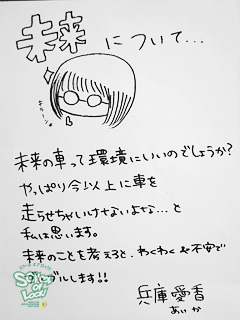 未来について...
キラーン
未来の車って環境にいいのでしょうか?
やっぱり今以上に車を
走らせちゃいけないよな...と
私は思います。
未来のことを考えると、わくわくや不安で
します!!
兵庫愛香
あいか